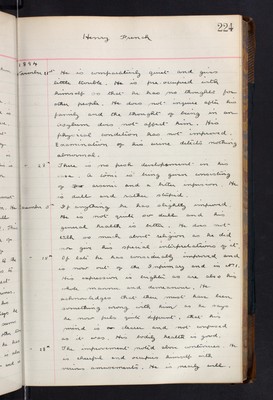 224
Henry French
1894
November 21st He is comparatively quiet and gives
little trouble. He is pre-occupied with
himself so that he has no thought for
other people. He does not inquire after his
family and the thought of being in an
asylum does not affect him. His
physical condition has not improved.
Examination of his urine detects nothing
abnormal.
28th There is no fresh development in his
case. A tonic is being given consisting
of arsenic and a bitter infusion. He
is dull and rather stupid.
December 5th If anything he has slightly improved.
He is not quite so dull and his
general health is better. He does not
talk so much about religion as he did
nor give his special interpretations of it.
12th If last he has considerably improved and
is now out of the Infirmary and in
His expression is brighter as are also his
whole manner and demeanour. He
acknowledges that there must have been
something wrong with him, as he says
he now feels quite different, that his
mind is clearer and not confused
as it was. His bodily health is good.
18th The improvement noted above continues. He
is cheerful and occupies himself with
various amusements. He is nearly well.